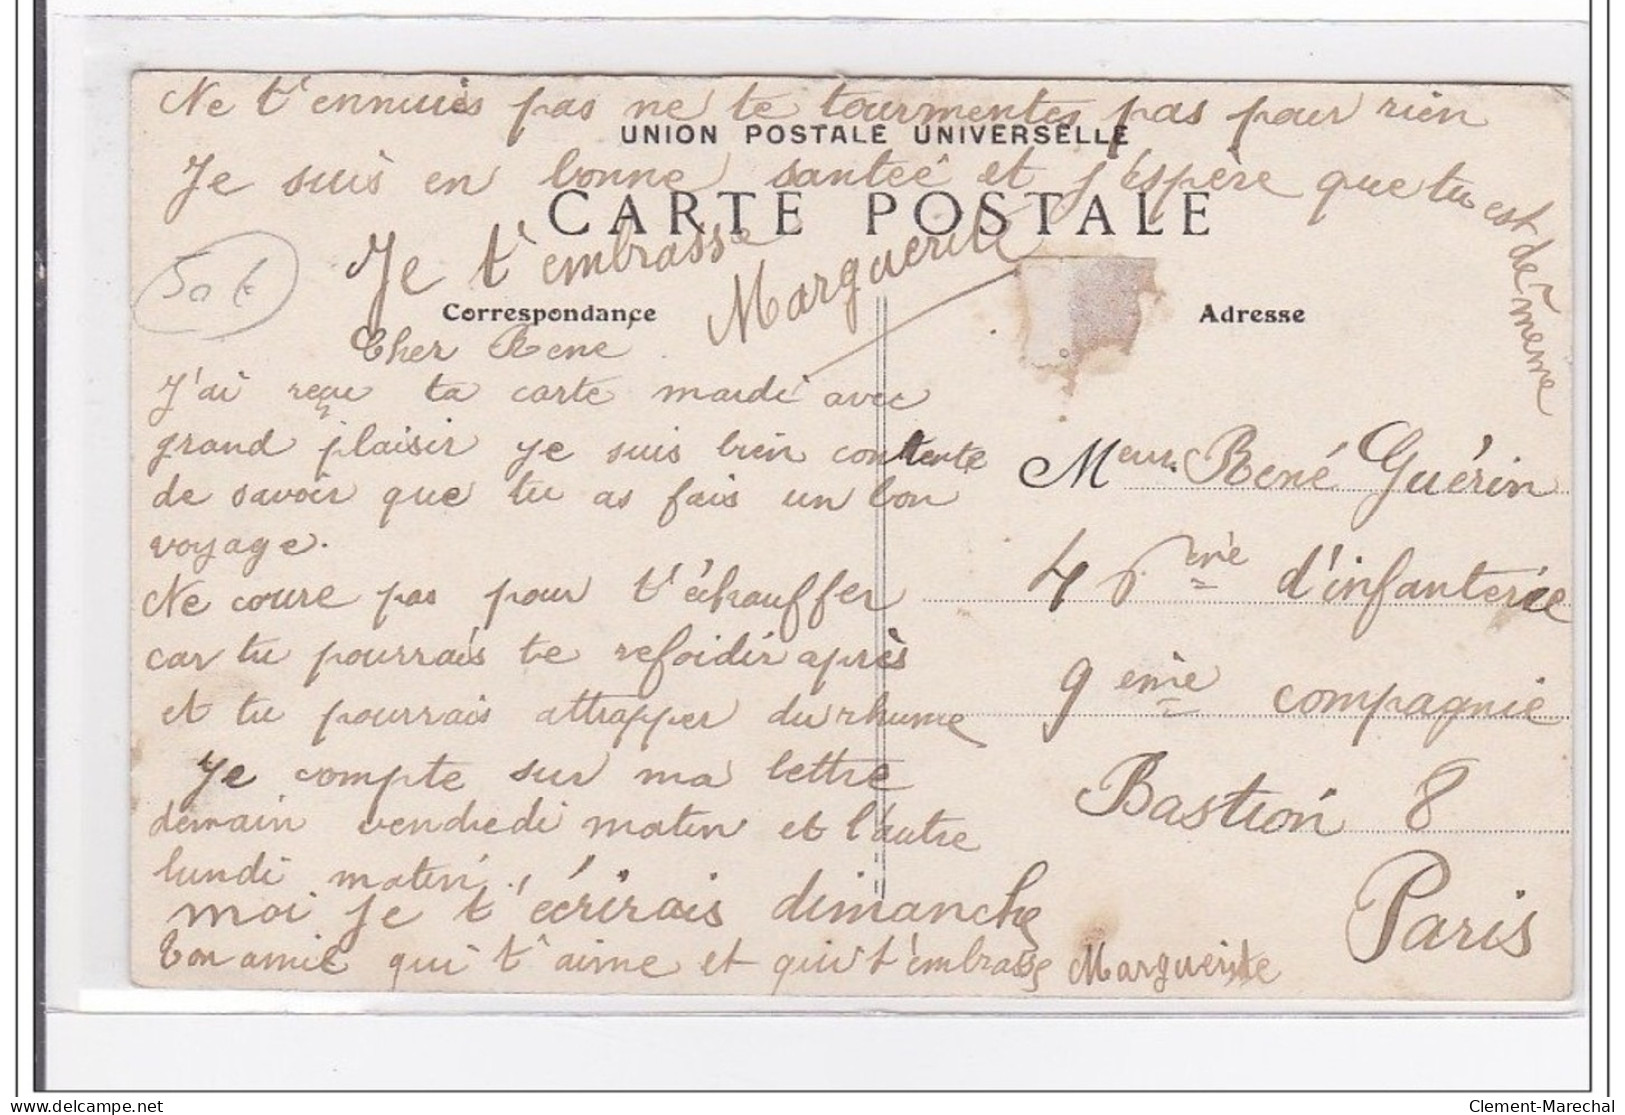 Ne t'ennuies pas ne te tourmentes pas pour rien
UNION POSTALE UNIVERSELLE
Je suis en bonne santeé et j'éspère que tu est de même
CARTE POSTALE
Je t'embrasse Marguerite
50 €
Correspondance
Adresse
Cher René
J'ai reçu ta carte mardi avec
grand plaisir je suis bien contente
de savoir que tu as fais un bon
voyage.
Ne coure pas pour t'échauffer
car tu pourrais te refoidir après
et tu pourrais attrapper du rhume
Je compte sur ma lettre
demain vendredi matin et l'autre
lundi matin,
moi je t'écrirais dimanche
Ton amie qui t'aime et qui t'embrasse Marguerite
Meur. René Guérin
4 ème d'infanterie
9 ème compagnie
Bastion 8
Paris
Clement-Marechal